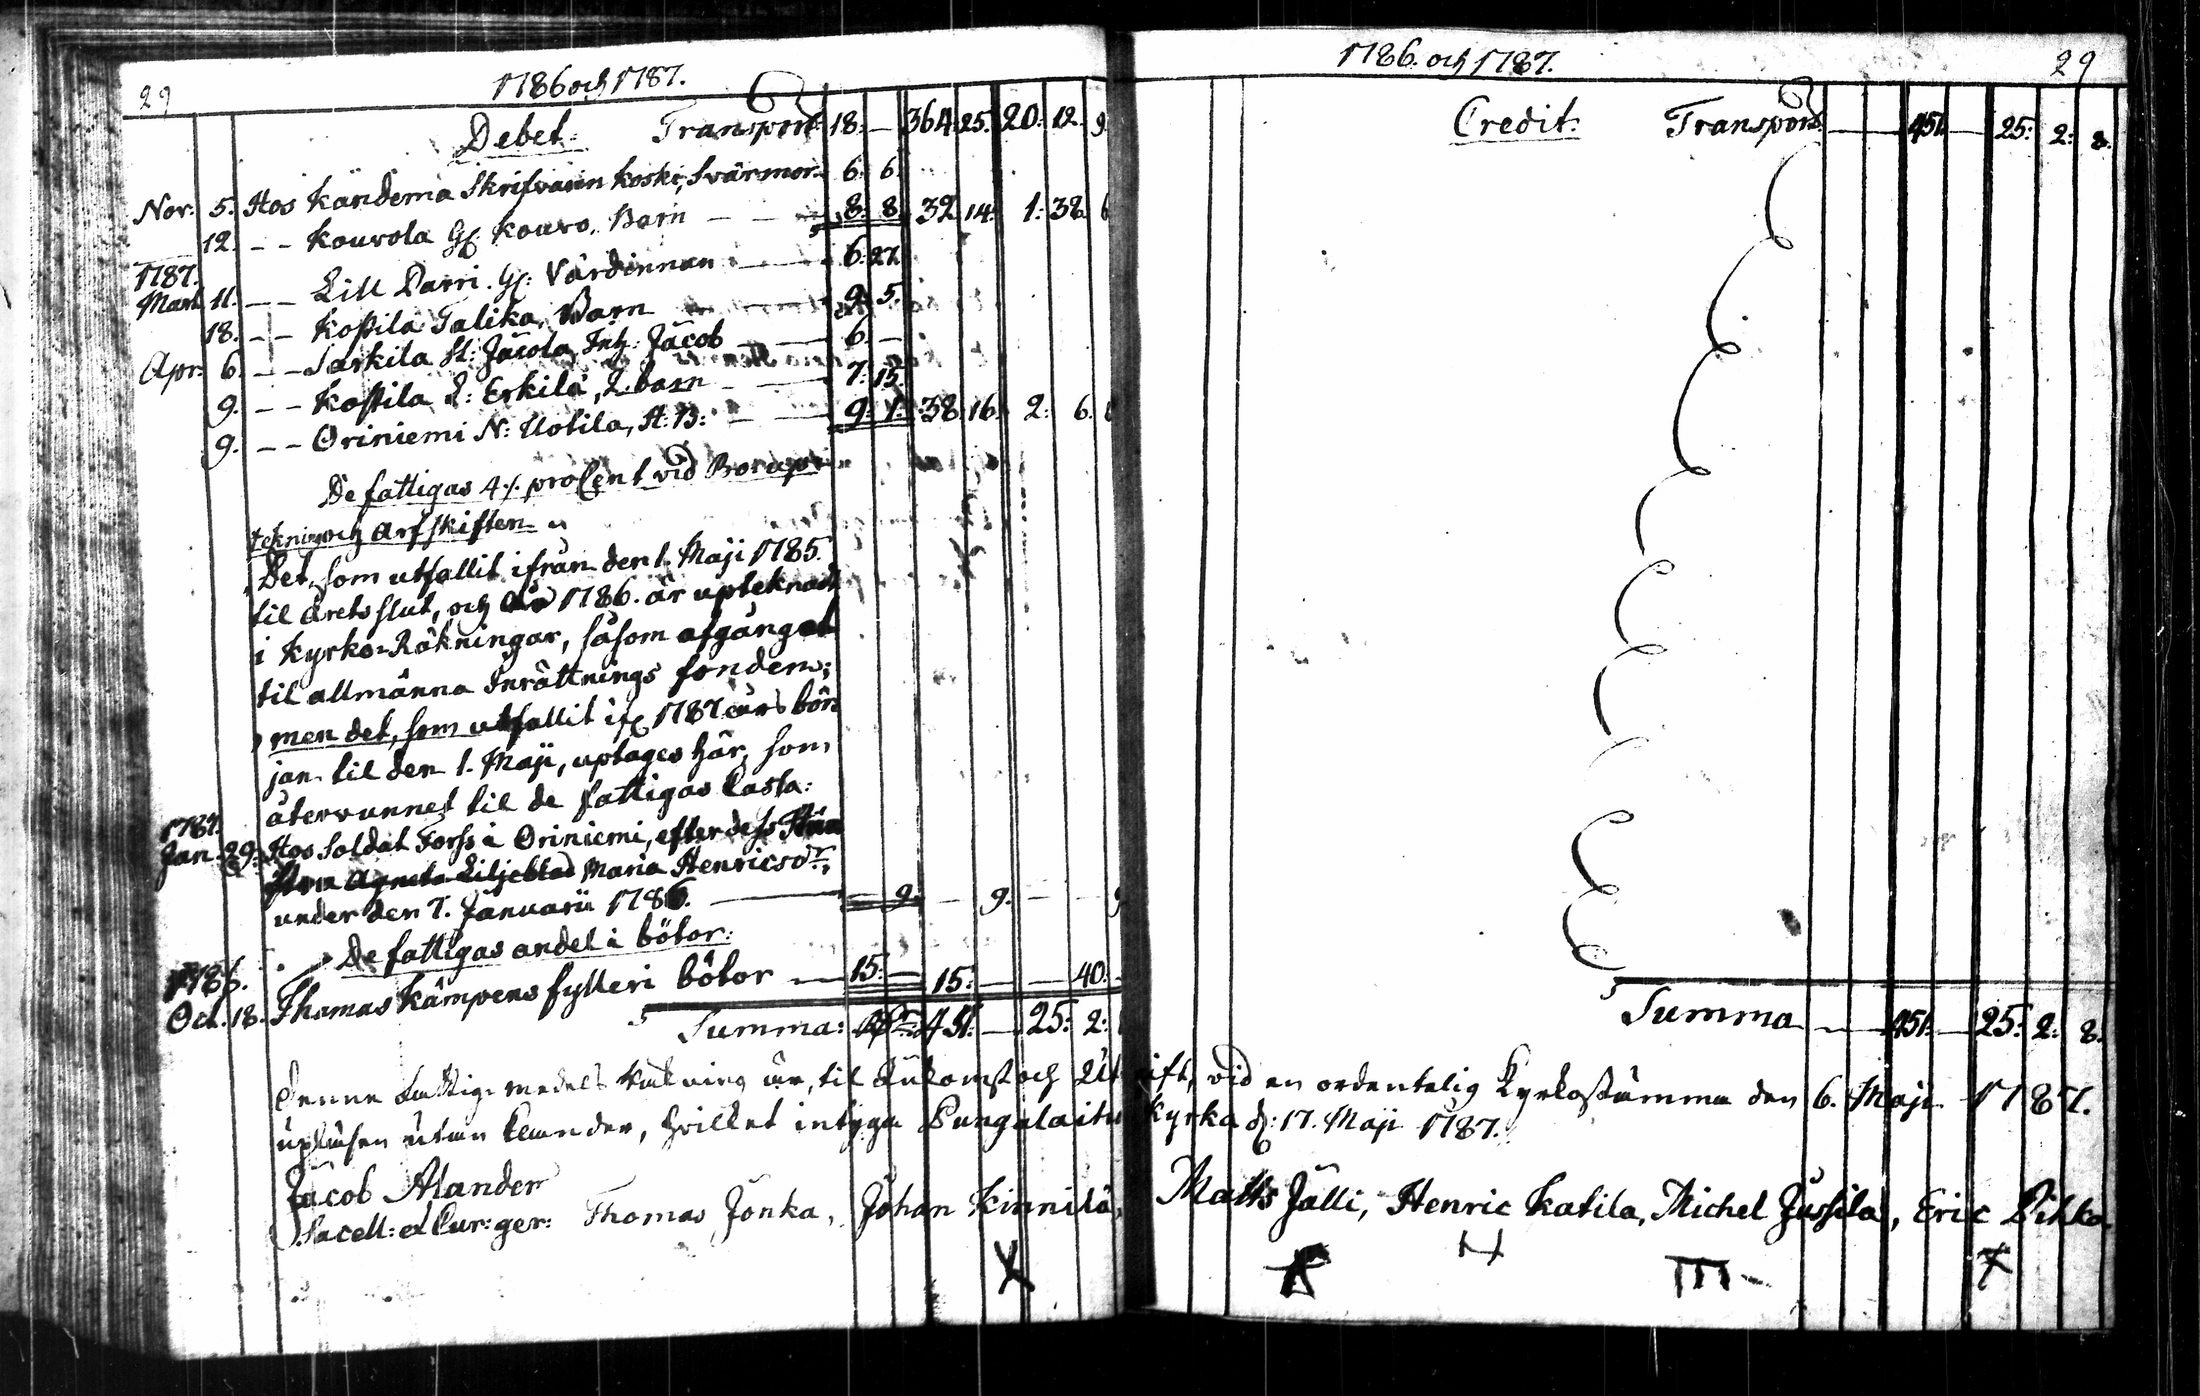 29 1786 och 1787.
Debet. Transport 18: — 364. 25. 20: 12. 9.
6: 6.
Nov: 5. Hos Kändema Skrifvarin Koski, Svärmor.
12. — — Kouvola Gf Kouvo, Barn — — 8: 8. 32. 14. 1: 38. 6
1787.
Mart. 11. — — Lill Parri. Gf: Värdinnan — 6: 27.
18. — — Kostila Talika, Barn — 9: 5.
Apr: 6. — — Sarkila St: Jacola, Inh: Jacob — 6. —
9. — — Kostila L: Erkilä, 2 barn — 7: 15.
9. — — Oriniemi N: Uotila, A: B: — 9: 1: 38. 16. 2: 6.
De fattigas 4 ./. proCent vid Bouppe
tekning och Arfskiften
Det, som utfallit ifrån den 1. Maji 1785.
til årets slut, och 1786. är upteknadt
i Kyrko-Räkningar, såsom afgånget
til allmänna Inrättnings fonden;
men det, som utfallit if 1787 års bör
jan til den 1. Maji, uptages här, som
återvunnet til de fattigas Cassa:
1787.
Jan. 29. Hos Soldat Forss i Oriniemi, efter dess
Agneta Liljeblad Maria Henricsdr,
under den 7. Januarii 1786. — 9. — 9. — 9
De fattigas andel i böter:
1786.
Oct. 18. Thomas Kämpens fylleri böter — 15: — 15: — — 40: —
Summa: 451: — 25: 2:
1786. och 1787. 29
Credit: Transport — 451. — 25: 2: 8.
Summa — 451. — 25: 2: 8.
Denne Fattig-medels Räkning är, til Inkomst och Utgift, vid en ordentelig Kyrkostämma den 6. Maji 1787.
upläsen utan klander, hvilket intyga Pungalaitu kyrka d: 17. Maji 1787.
Jacob Alander
Sacell: et Cur: ger: Thomas Jonka, Johan Kinnilä, Matts Jälli, Henric Katila, Michel Jussila, Eric Pihka